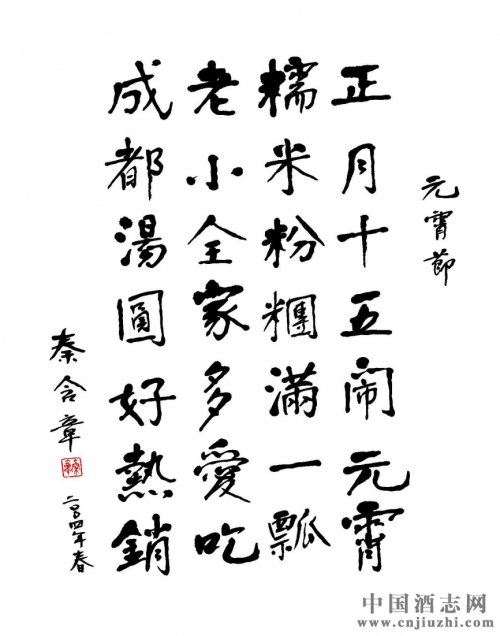 元霄節
正月十五闹元霄
糯米粉糰滿一瓢
老小全家多愛吃
成都湯圓好熱銷
秦含章
二〇〇四年春
中国酒志网
www.cnjiuzhi.com